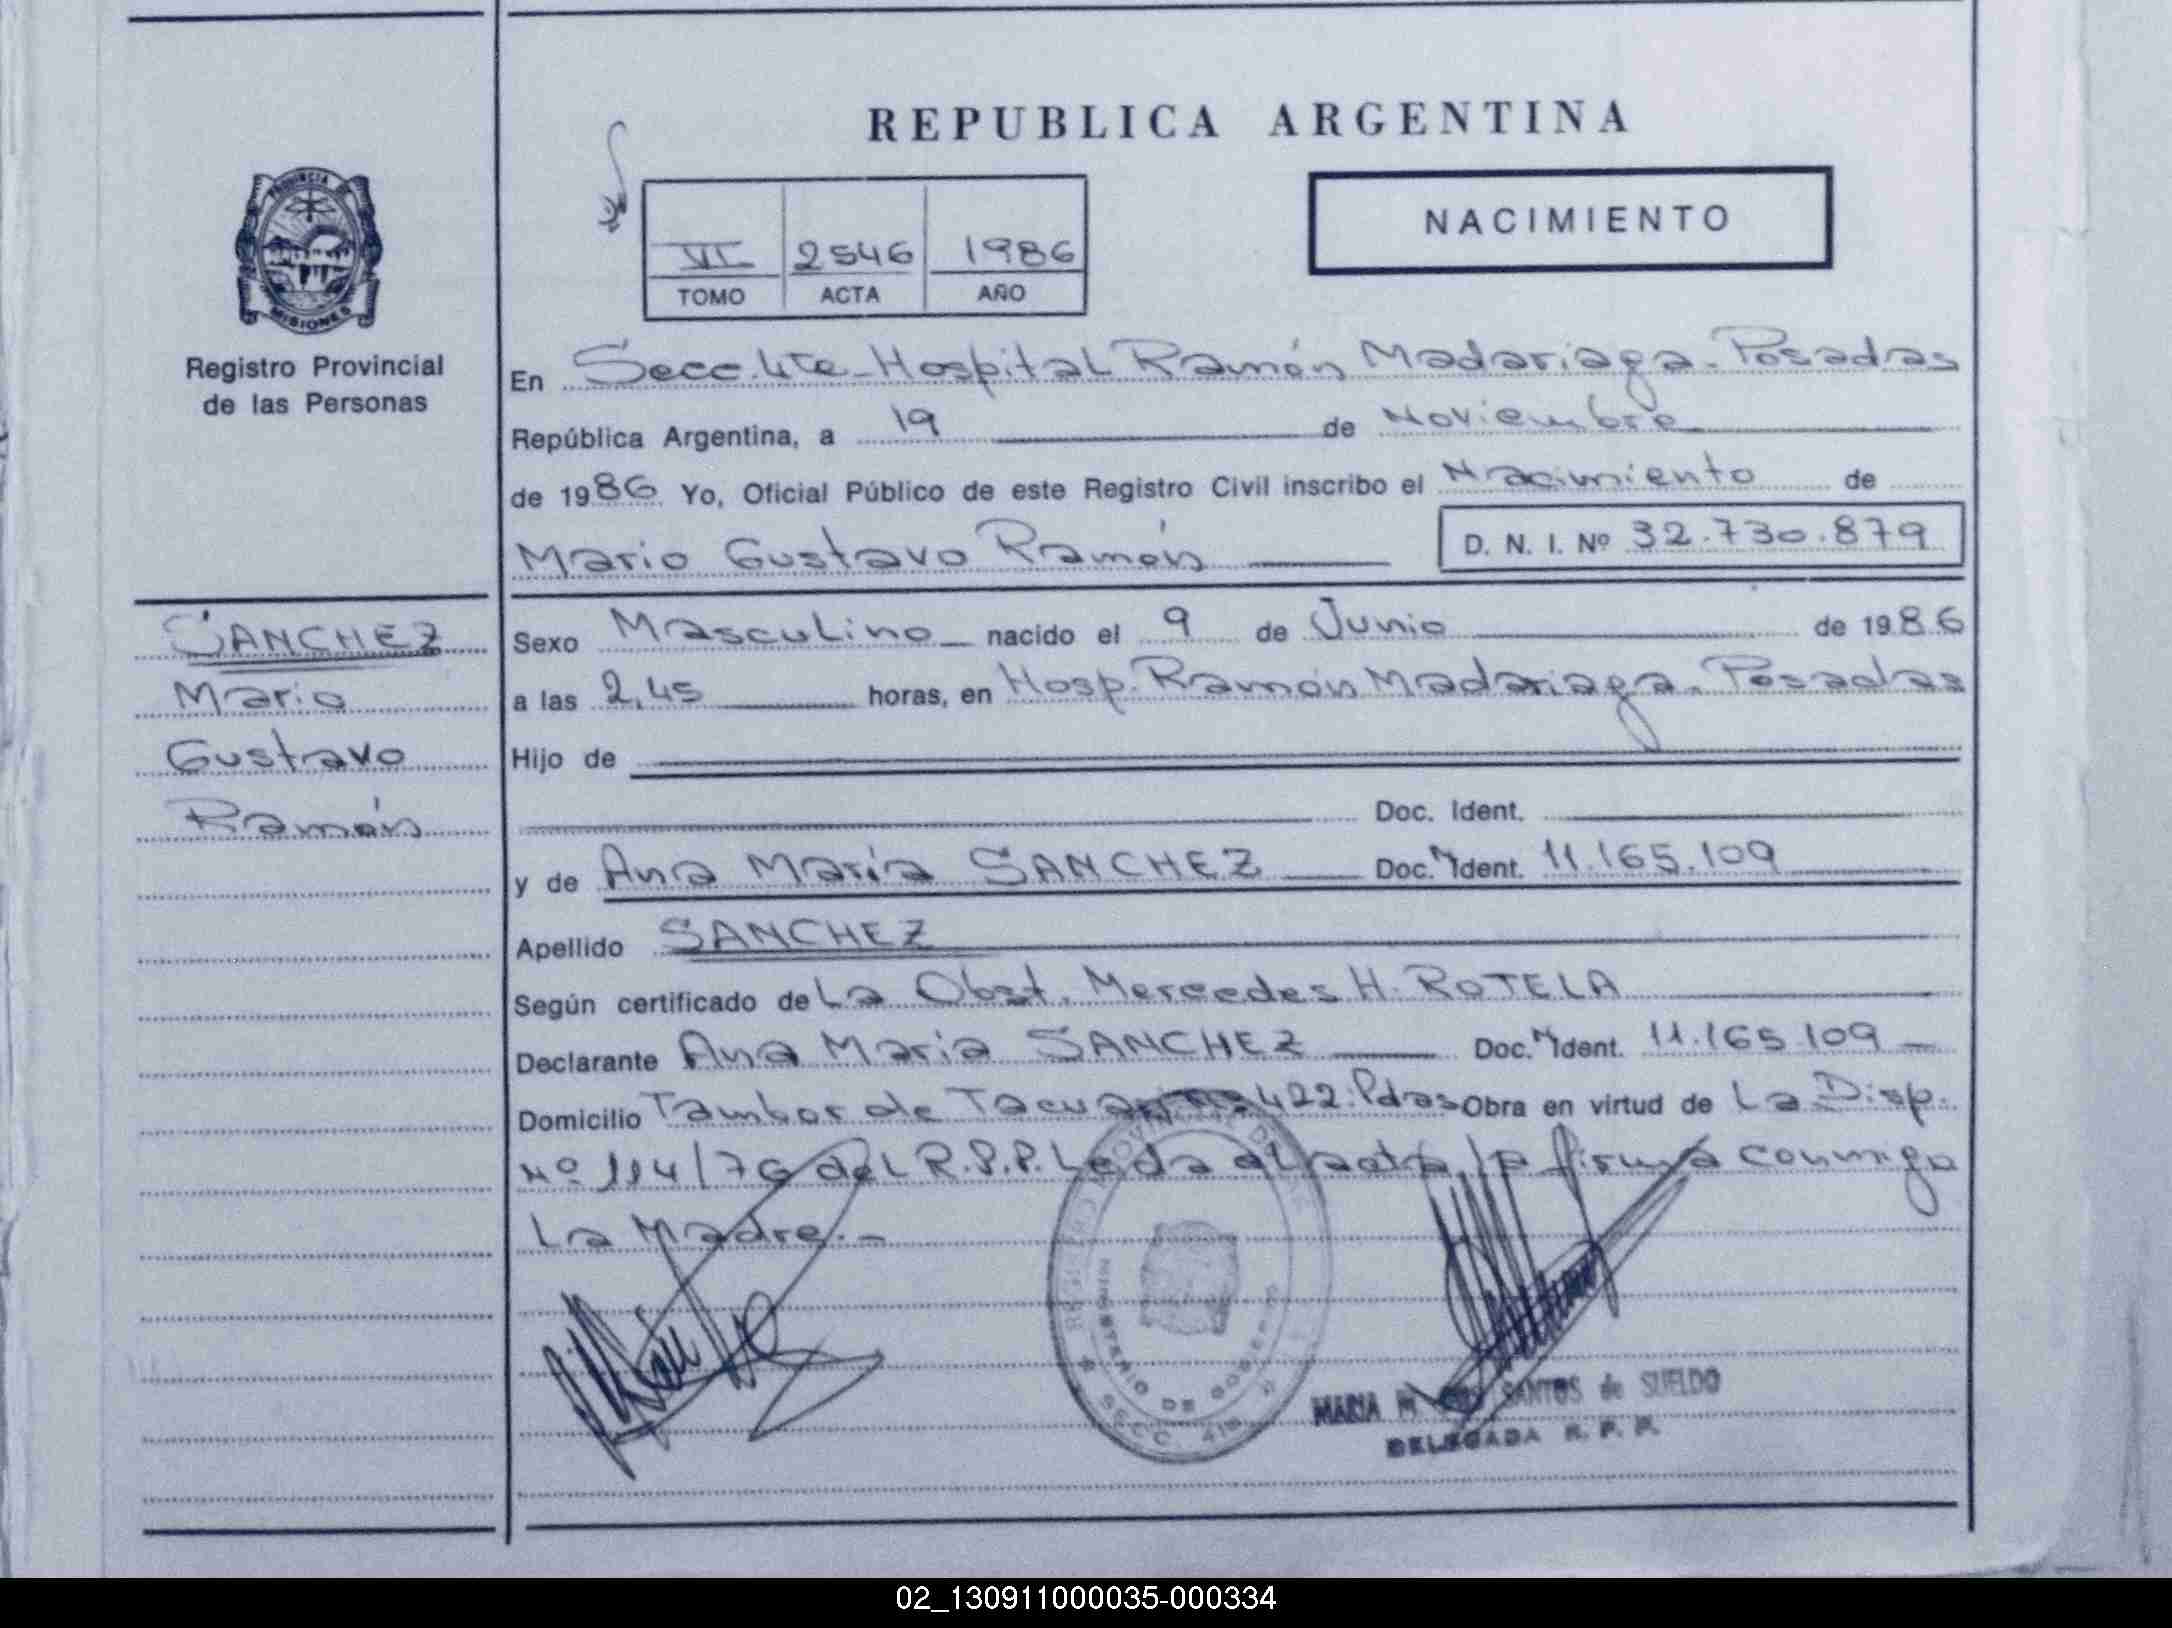 REPUBLICA ARGENTINA
PROVINCIA DE
MISIONES
Registro Provincial
de las Personas
VI 2546 1986
TOMO ACTA AÑO
NACIMIENTO
En Secc. 4ta - Hospital Ramón Madariaga - Posadas
República Argentina, a 19 de Noviembre
de 1986 Yo, Oficial Público de este Registro Civil inscribo el Nacimiento de
Mario Gustavo Ramón D. N. I. Nº 32.730.879
SANCHEZ
Mario
Gustavo
Ramón
Sexo Masculino nacido el 9 de Junio de 1986
a las 2,45 horas, en Hosp. Ramón Madariaga - Posadas
Hijo de
Doc. Ident.
y de Ana María SANCHEZ Doc. Ident. 11.165.109
Apellido SANCHEZ
Según certificado de La Obst. Mercedes H. ROTELA
Declarante Ana Maria SANCHEZ Doc. Ident. 11.165.109
Domicilio Tambor de 422 Pdas Obra en virtud de La Disp.
Nº 114/76 del R.P.P. Leida el acta, la firma conmigo
La Madre.-
MINISTERIO DE GOBIERNO
SECC. 4ta
MARIA SANTOS de SUELDO
DELEGADA R. P. P.
02_130911000035-000334